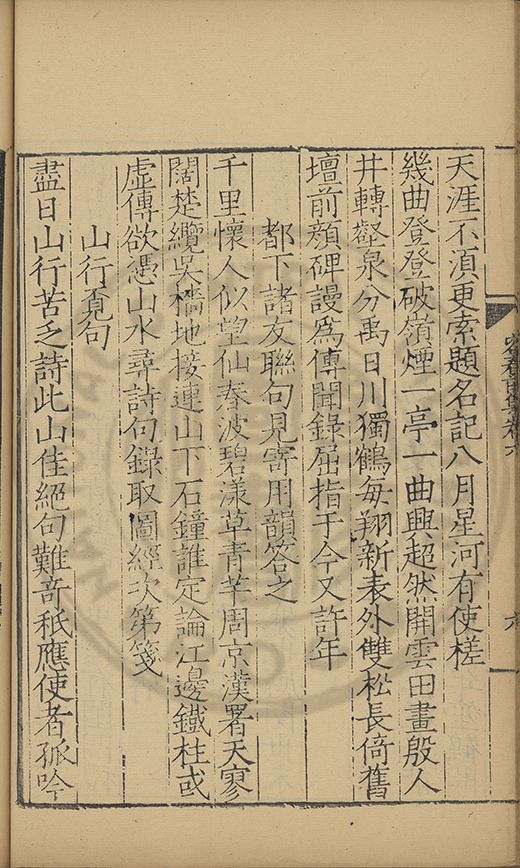 天涯不湏更索題名記八月星河有使槎
幾曲登登破嶺煙一亭一曲興超然開雲田畫殷人
井轉壑泉分禹日川獨鶴每翔新表外雙松長倚舊
壇前顔碑謾爲傳聞錄屈指于今又許年
都下諸友聯句見寄用韻答之
千里懷人似望仙春波碧漾草青芊周京漢署天寥
闊楚纜吳檣地接連山下石鐘誰定論江邊鐵柱或
虛傳欲憑山水尋詩句錄取圖經次第箋
山行覔句
盡日山行苦乏詩此山佳絕句難竒秪應使者孤吟